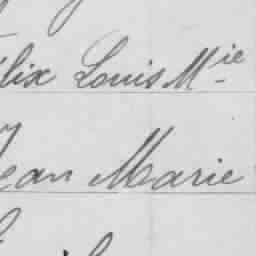 élix Louis Mie
Jean Marie